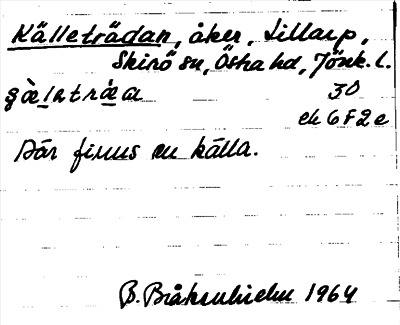 Källeträdan, åker, Lillarp,
Skirö sn, Östra hd, Jönk. l.
30
ek 6 F 2 e
Där finns en källa.
B. Bråkenhielm 1964